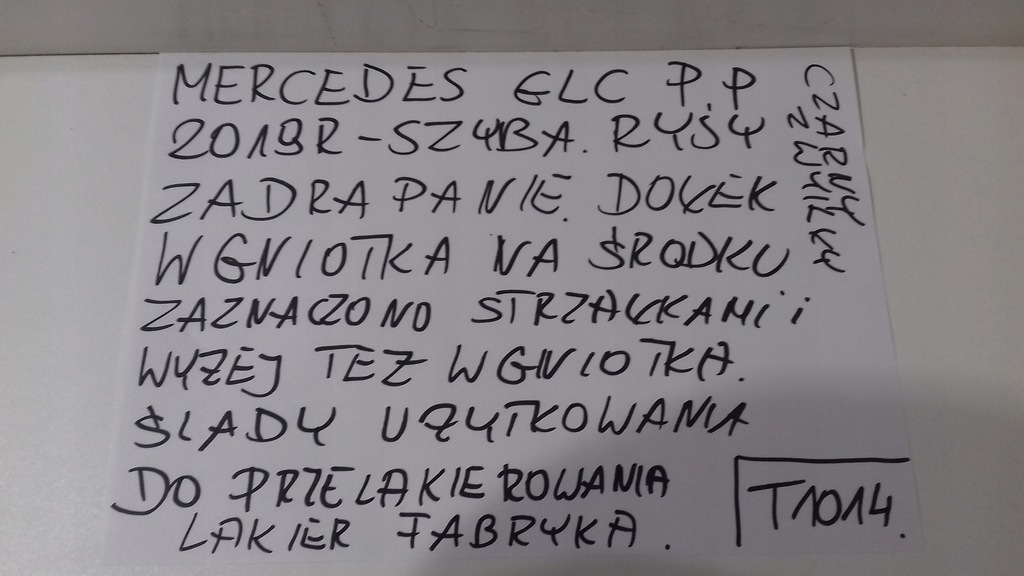 MERCEDES GLC P.P
2019R - SZYBA. RYSY
ZADRAPANIE. DOŁEK
WGNIOTKA NA ŚRODKU
ZAZNACZONO STRZAŁKAMI i
WYŻEJ TEŻ WGNIOTKA.
ŚLADY UŻYTKOWANIA
DO PRZELAKIEROWANIA
LAKIER FABRYKA.
T1014.
CZARNY